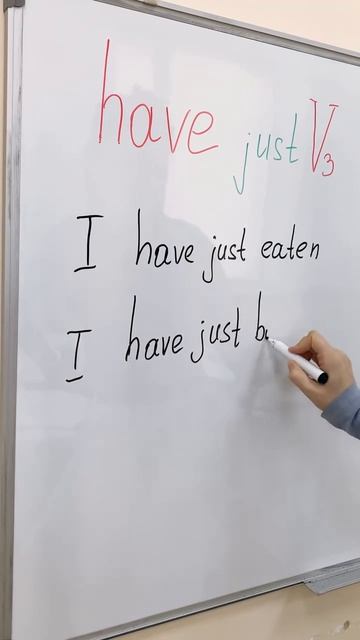 have just V₃
I have just eaten
I have just b